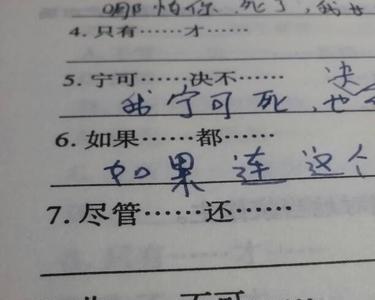 哪怕你死了,我也
4. 只有……才……
5. 宁可……决不……决
我宁可死,也
6. 如果……都……
如果连这个
7. 尽管……还……